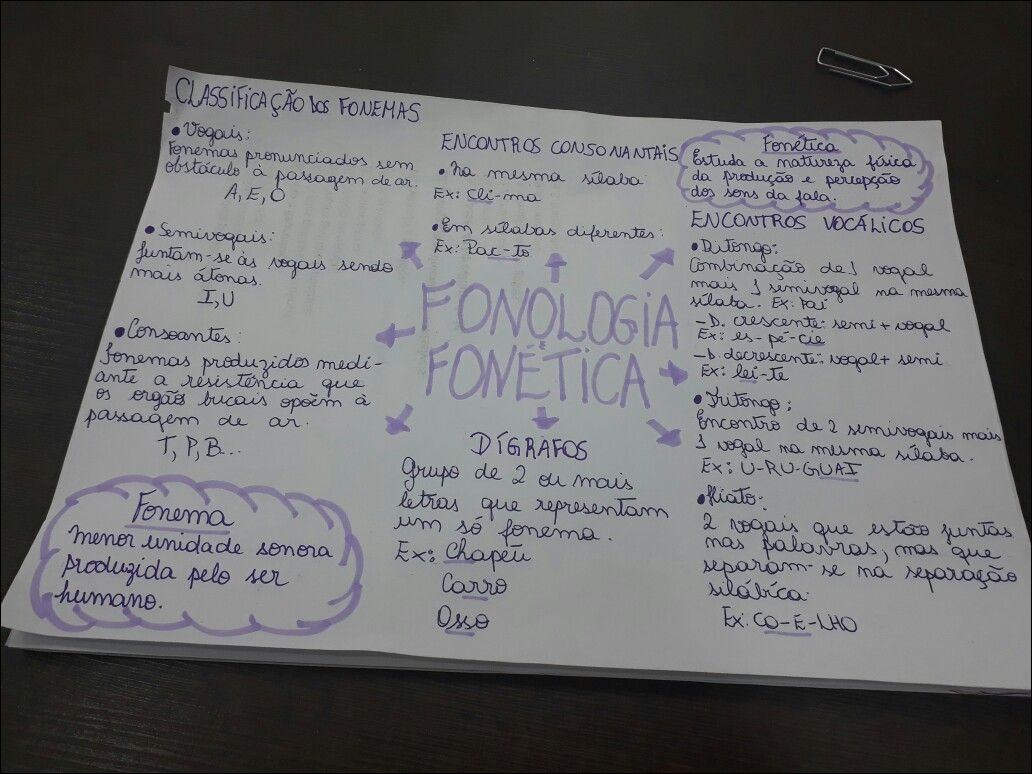 CLASSIFICAÇÃO DOS FONEMAS
• Vogais:
Fonemas pronunciados sem
obstáculo à passagem de ar.
A, E, O
• Semivogais:
Juntam-se às vogais sendo
mais átonas.
I, U
• Consoantes:
Fonemas produzidos medi-
ante a resistência que
os orgãos bucais opõem à
passagem de ar.
T, P, B...
Fonema
menor unidade sonora
produzida pelo ser
humano.
ENCONTROS CONSONANTAIS
• Na mesma sílaba
Ex: Cli-ma
• Em sílabas diferentes:
Ex: Pac-to
FONOLOGIA
E
FONÉTICA
DÍGRAFOS
Grupo de 2 ou mais
letras que representam
um só fonema.
Ex: Chapéu
Carro
Osso
Fonética
Estuda a natureza física
da produção e percepção
dos sons da fala.
ENCONTROS VOCÁLICOS
• Ditongo:
Combinação de 1 vogal
mais 1 semivogal na mesma
sílaba. Ex: Pai
-D. crescente: semi + vogal
Ex: es-pé-cie
-D. decrescente: vogal + semi
Ex: lei-te
• Tritongo:
Encontro de 2 semivogais mais
1 vogal na mesma sílaba.
Ex: U-RU-GUAI
• Hiato:
2 vogais que estão juntas
nas palavras, mas que
separam-se na separação
silábica.
Ex: CO-E-LHO